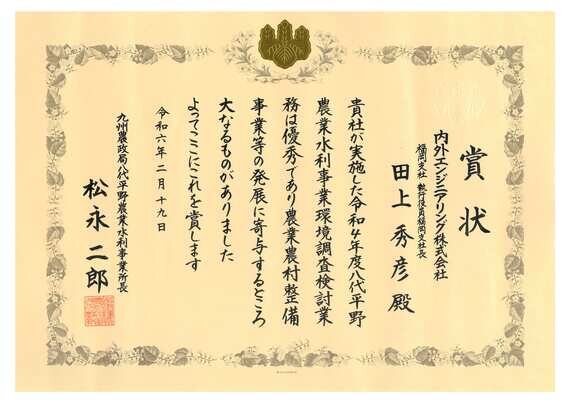 賞状
内外エンジニアリング株式会社
福岡支社 執行役員福岡支社長
田上秀彦 殿
貴社が実施した令和4年度八代平野
農業水利事業環境調査検討業
務は優秀であり農業農村整備
事業等の発展に寄与するところ
大なるものがありました
よってここにこれを賞します
令和六年二月十九日
九州農政局八代平野農業水利事業所長
松永二郎